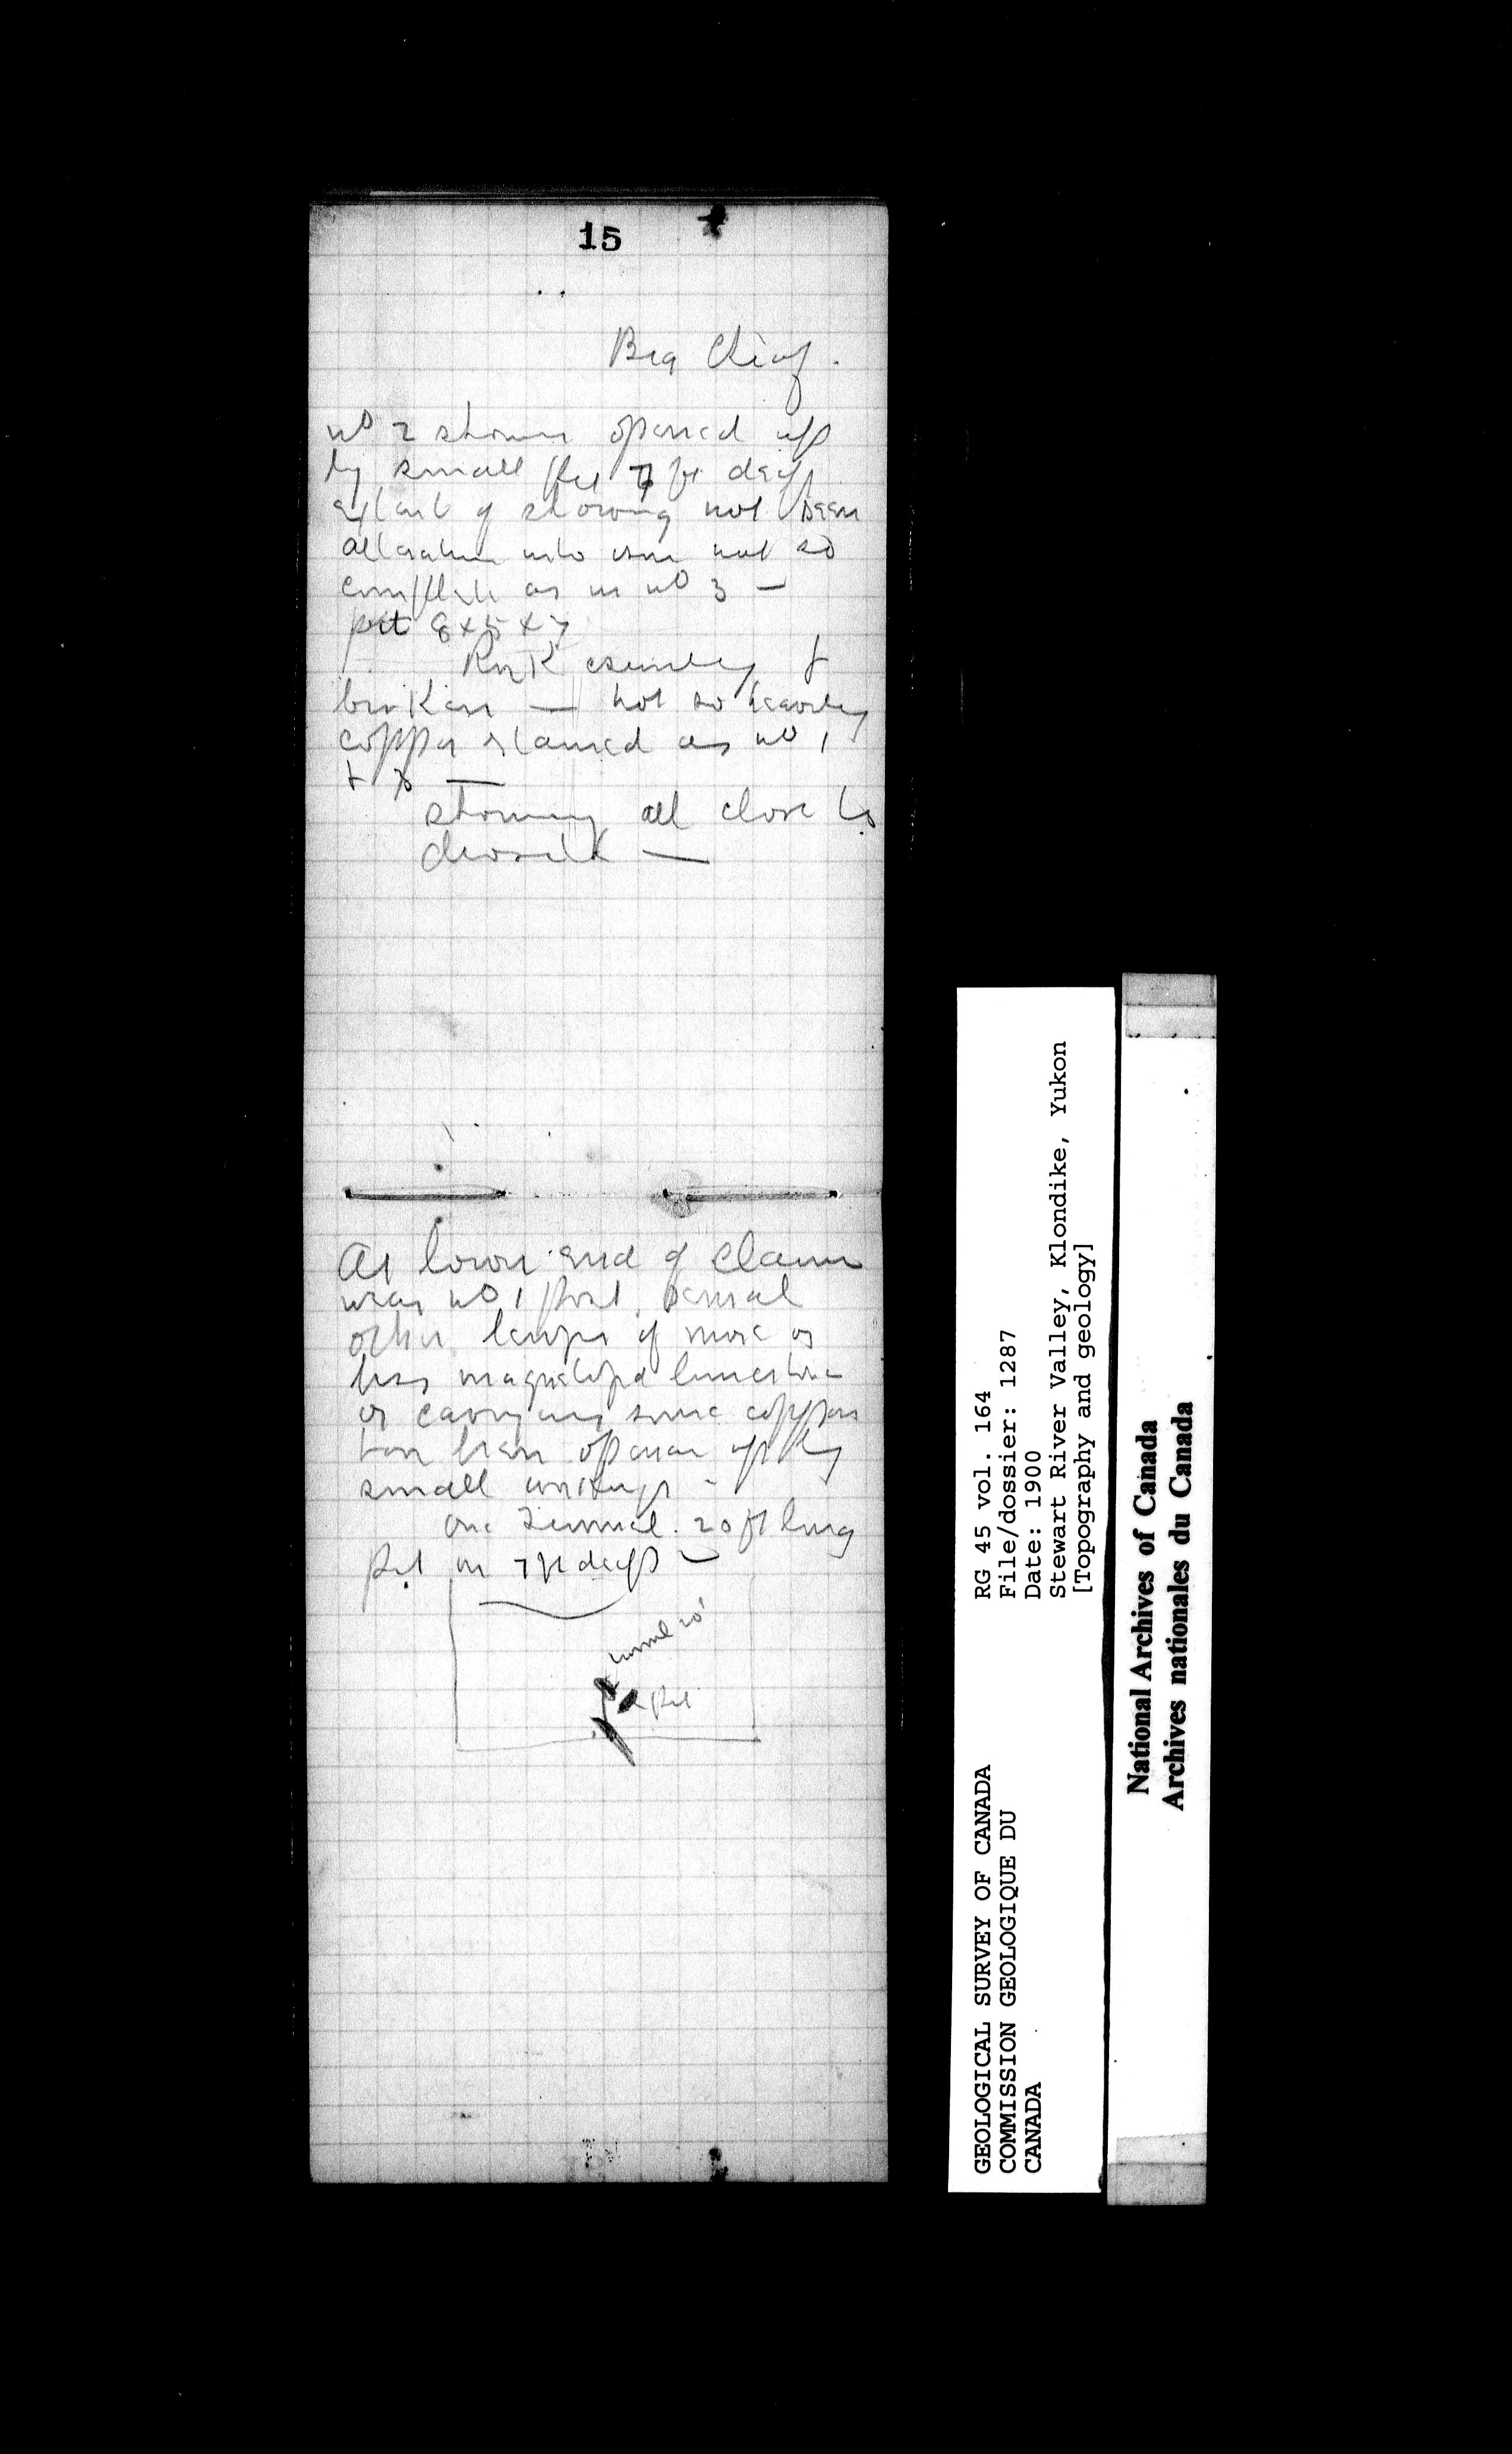 15
Big Chief.
No 2 showing opened up
by small pit 7 ft deep
extent of showing not seen
alteration into iron not so
complete as in No 3 —
pit 8 x 5 x 7
Rock crumbly &
broken — not so heavily
copper stained as No 1
& 3 —
showing all close to
At lower end of claim
near No 1 post, several
other lenses of more or
less magnetized limestone
or carrying some copper
have been opened up by
small workings -
one Tunnel. 20 ft long
pit on 7 ft deep —
tunnel 20'
pit
GEOLOGICAL SURVEY OF CANADA
COMMISSION GEOLOGIQUE DU
CANADA
RG 45 vol. 164
File/dossier: 1287
Date: 1900
Stewart River Valley, Klondike, Yukon
[Topography and geology]
National Archives of Canada
Archives nationales du Canada